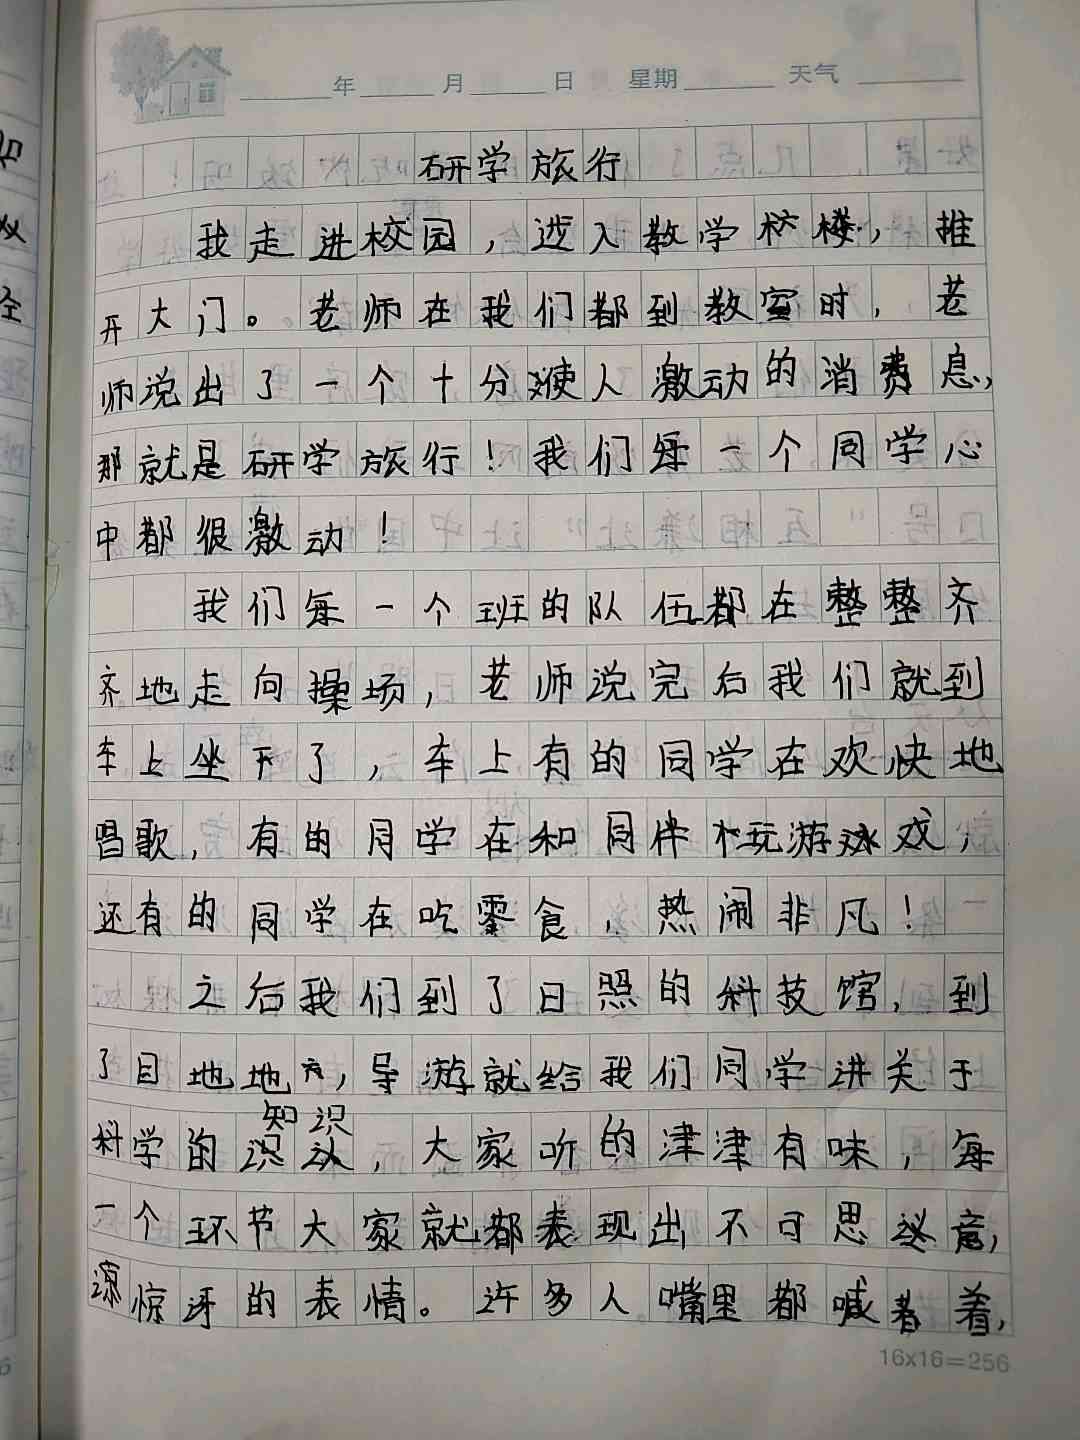 年 月 日 星期 天气
研学旅行
我走进校园，进入教学楼，推
开大门。老师在我们都到教室时，老
师说出了一个十分使人激动的消息，
那就是研学旅行！我们每一个同学心
中都很激动！
我们每一个班的队伍都在整整齐
齐地走向操场，老师说完后我们就到
车上坐下了，车上有的同学在欢快地
唱歌，有的同学在和同伴玩游戏，
还有的同学在吃零食，热闹非凡！
之后我们到了日照的科技馆，到
了目地地方，导游就给我们同学讲关于
知识
科学的，大家听的津津有味，每
一个环节大家就都表现出不可思意，
惊讶的表情。许多人嘴里都喊着，
16x16=256